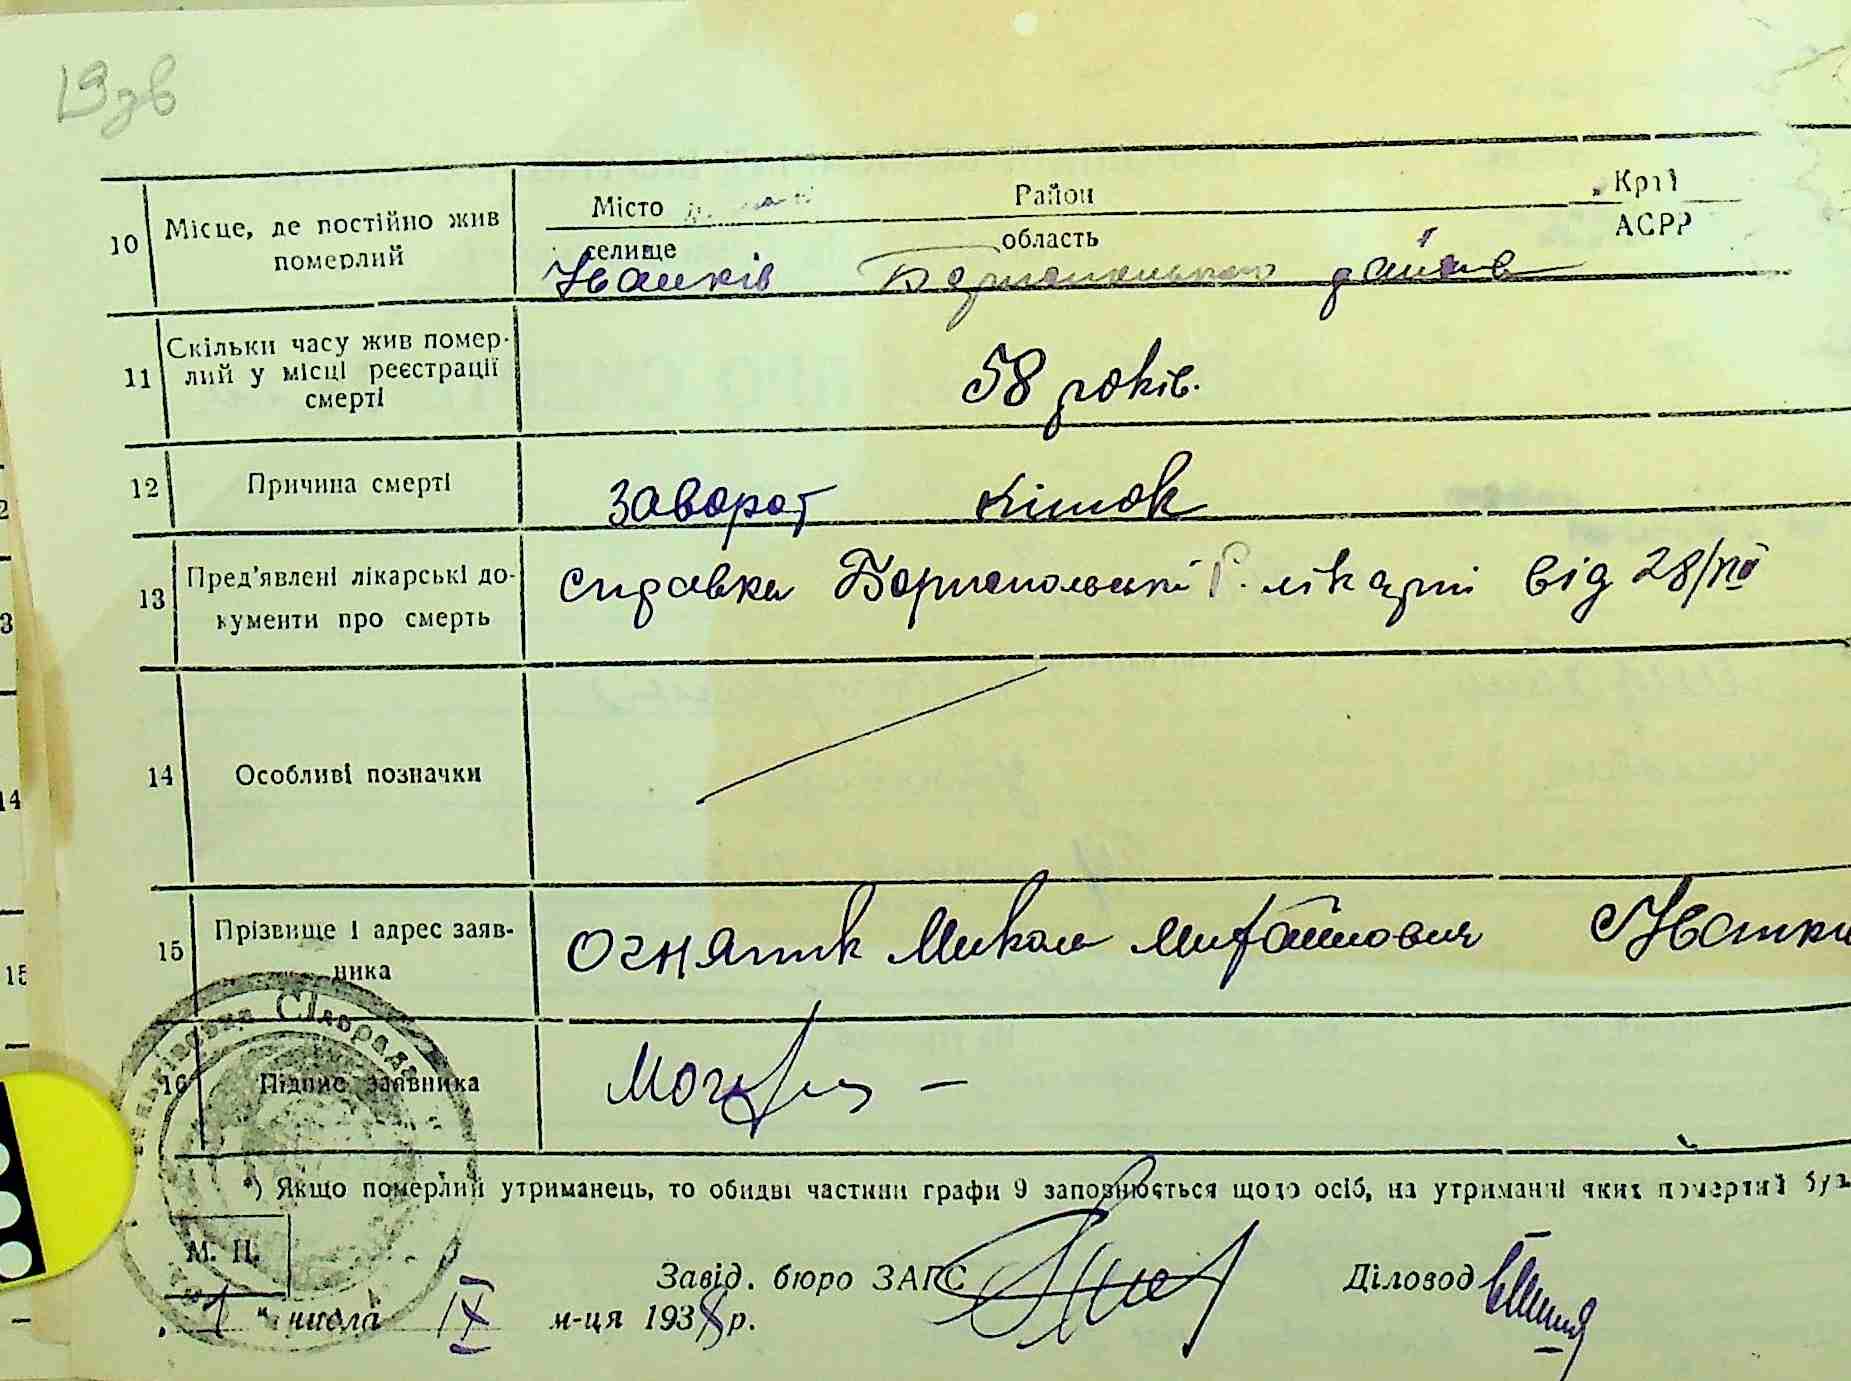 19зв
Місто Район Край
селище область АСРР
10 Місце, де постійно жив
померлий
Іванків Бориспільського району
11 Скільки часу жив помер-
лий у місці реєстрації
смерті
58 років.
12 Причина смерті
заворот кішок
13 Пред'явлені лікарські до-
кументи про смерть
справка Бориспольської Р. лікарні від 28/VIII
14 Особливі позначки
15 Прізвище і адрес заяв-
ника
Огняник Микола Михайлович Іванки
16 Підпис заявника
*) Якщо померлий утриманець, то обидві частини графи 9 заповнюється щодо осіб, на утриманні яких померлий був
М. П.
Завід. бюро ЗАГС Діловод
„1" числа IX м-ця 1938 р.
Сільрада